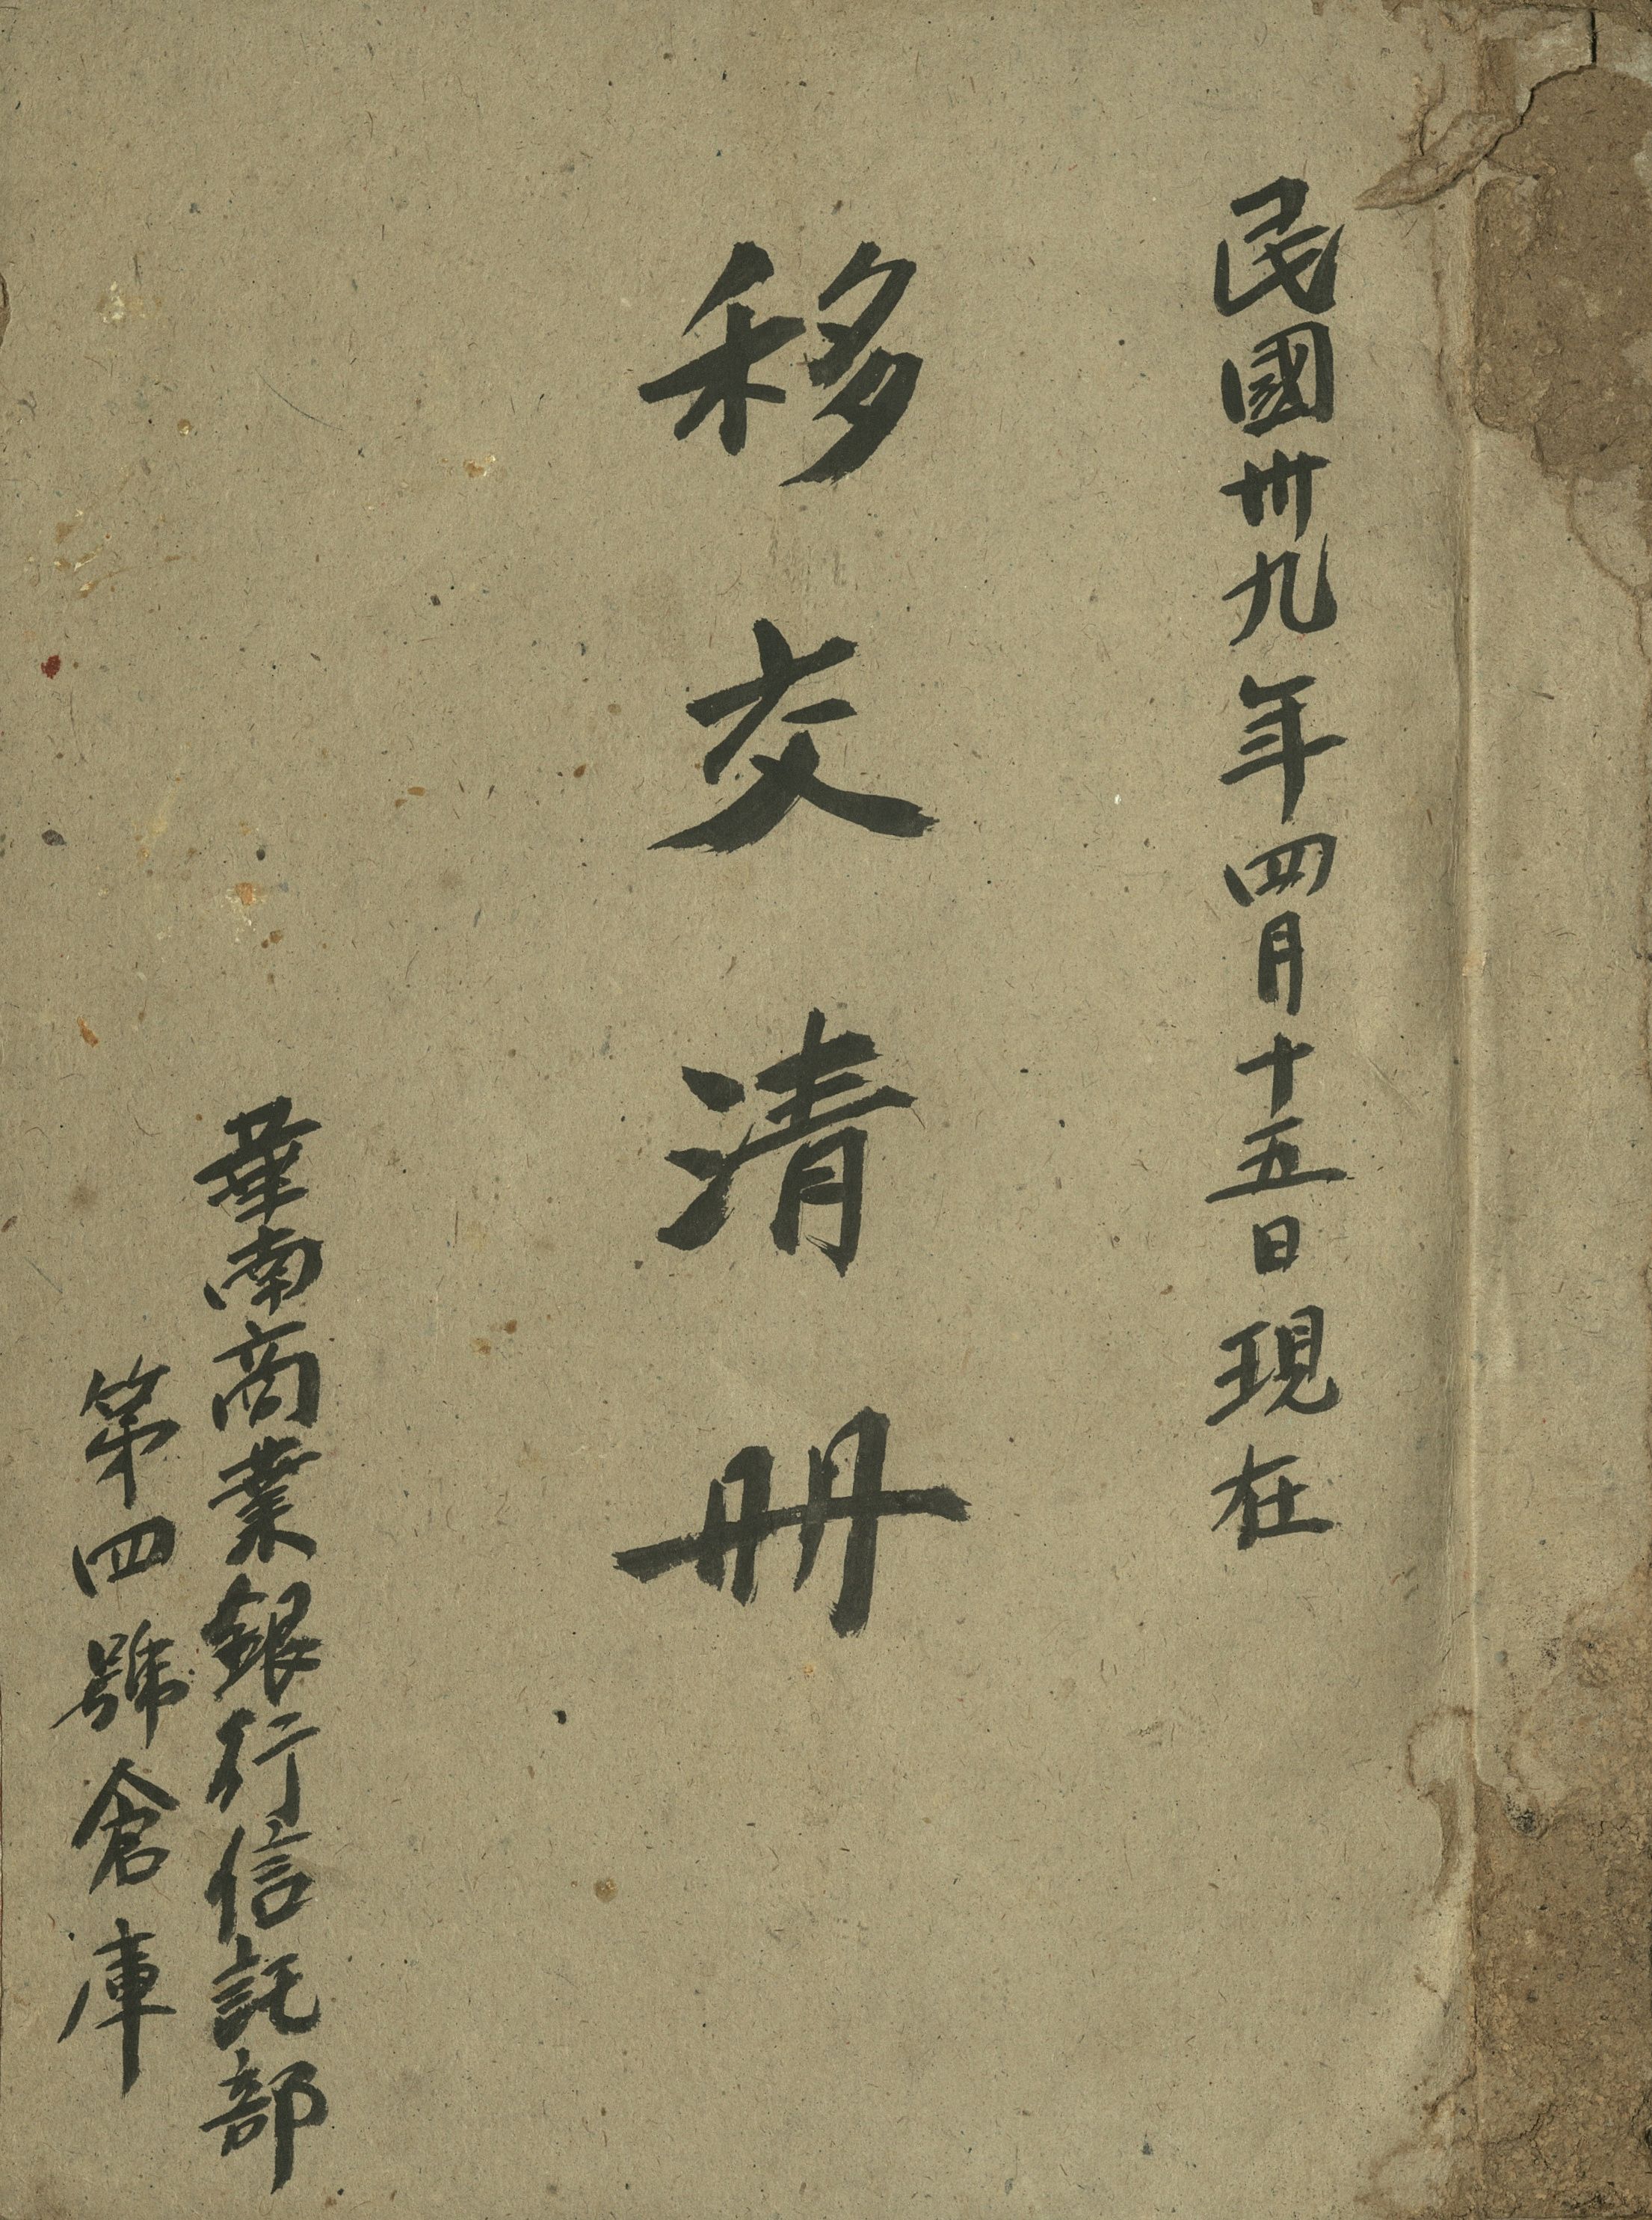 民國卅九年四月十五日現在
移交清册
華南商業銀行信託部
第四號倉庫